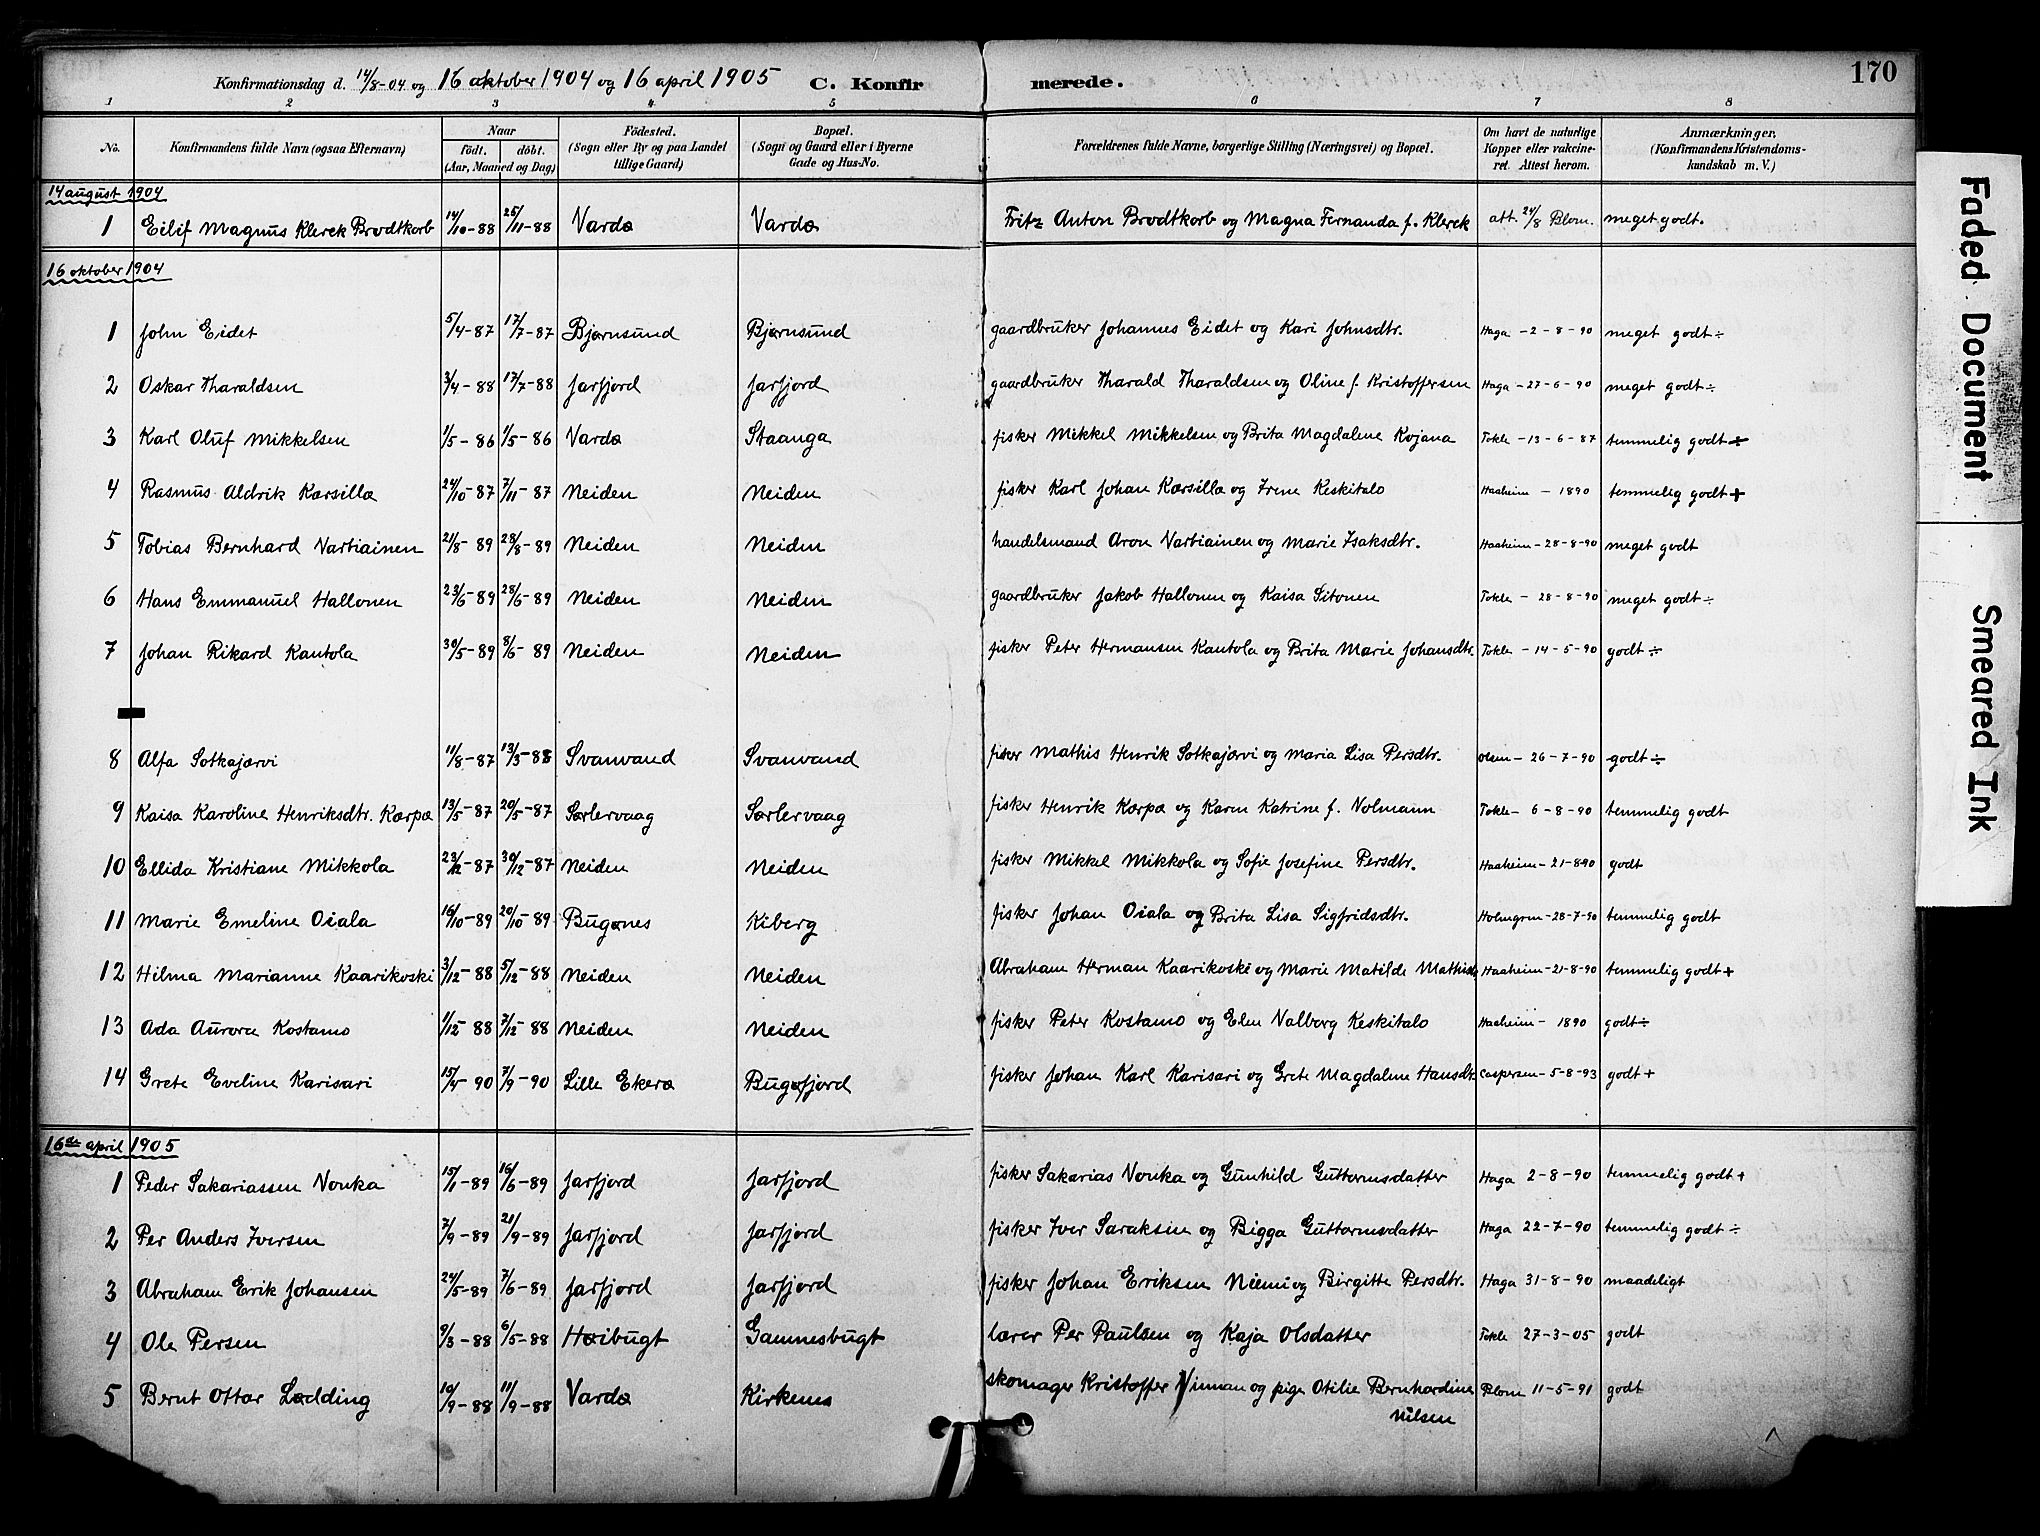 Konfirmationsdag d. 14/8-04 og 16 oktober 1904 og 16 april 1905 C. Konfirmerede. 170
1 2 3 4 5 6 7 8
No. Konfirmandens fulde Navn (ogsaa Efternavn) Naar födt. döbt. (Aar, Maaned og Dag) Födested. (Sogn eller By og paa Landet tillige Gaard) Bopæl. (Sogn og Gaard eller i Byerne Gade og Hus-No. Forældrenes fulde Navne, borgerlige Stilling (Næringsvei) og Bopæl. Om havt de naturlige Kopper eller vakcineret. Attest herom. Anmærkninger. (Konfirmandens Kristendomskundskab m. V.)
14 august 1904
1 Eilif Magnus Klerck Brodtkorb 14/10-88 25/11-88 Vardø Vardø Fritz Anton Brodtkorb og Magna Fernanda f. Klerck att. 24/8 Blom. meget godt.
16 oktober 1904
1 John Eidet 5/4-87 17/7-87 Bjørnsund Bjørnsund gaardbruker Johannes Eidet og Kari Johnsdtr. Haga -2-8-90 meget godt ÷
2 Oskar Tharaldsen 3/4-88 17/7-88 Jarfjord Jarfjord gaardbruker Tharald Tharaldsen og Oline f. Kristoffersen Haga -27-6-90 meget godt ÷
3 Karl Oluf Mikkelsen 1/5-86 1/5-86 Vardø Staanga fisker Mikkel Mikkelsen og Brita Magdalene Kojana Tokle -13-6-87 temmelig godt ÷
4 Rasmus Aldrik Karsilla 24/10-87 7/11-87 Neiden Neiden fisker Karl Johan Karsilla og Irene Keskitalo Haaheim - 1890 temmelig godt +
5 Tobias Bernhard Vartiainen 21/8-89 28/8-89 Neiden Neiden handelsmand Aron Vartiainen og Marie Isaksdtr. Haaheim -28-8-90 meget godt
6 Hans Emmanuel Hallonen 23/6-89 28/6-89 Neiden Neiden gaardbruker Jakob Hallonen og Kaisa Sitonen Tokle - 28-8-90 meget godt ÷
7 Johan Rikard Kantola 30/5-89 8/6-89 Neiden Neiden fisker Peter Hermansen Kantola og Brita Marie Johansdtr. Tokle -14-5-90 godt ÷
8 Alfa Sotkajærvi 11/8-87 13/3-88 Svanvand Svanvand fisker Mathis Henrik Sotkajærvi og Maria Lisa Persdtr. Olsen - 26-7-90 godt ÷
9 Kaisa Karoline Henriksdtr. Karpa 13/5-87 20/5-87 Sørlervaag Sørlervaag fisker Henrik Karpa og Karen Katrine f. Nolmann Tokle - 6-8-90 temmelig godt
10 Ellida Kristiane Mikkola 23/12-87 30/12-87 Neiden Neiden fisker Mikkel Mikkola og Sofie Josefine Persdtr. Haaheim -21-890 godt
11 Marie Emeline Oiala 16/10-89 20/10-89 Bugønes Kiberg fisker Johan Oiala og Brita Lisa Sigfridsdtr. Holmgren -28-7-90 temmelig godt
12 Hilma Marianne Kaarikoski 3/12-88 5/12-88 Neiden Neiden Abraham Herman Kaarikoski og Marie Matilde Haaheim -21-8-90 temmelig godt +
13 Ada Aurora Kostamo 1/12-88 7/12-88 Neiden Neiden fisker Peter Kostamo og Elen Valborg Keskitalo Haaheim - 1890 godt ÷
14 Grete Eveline Karisari 15/4-90 7/9-90 Lille Ekerø Bugøfjord fisker Johan Karl Karisari og Grete Magdalene Hansdt. Caspersen -5-8-93 godt +
16de april 1905
1 Peder Sakariassen Vonka 15/1-89 16/6-89 Jarfjord Jarfjord fisker Sakarias Vonka og Gunhild Guttormsdatter Haga 2-8-90 temmelig godt +
2 Per Anders Iversen 7/9-89 21/9-89 Jarfjord Jarfjord fisker Iver Saraksen og Bigga Guttormsdatter Haga 22-7-90 temmelig godt ÷
3 Abraham Erik Johansen 24/5-89 7/6-89 Jarfjord Jarfjord fisker Johan Eriksen Niemi og Birgitte Persdtr. Haga 31-8-90 maadeligt
4 Ole Persen 9/3-88 6/5-88 Høibugt Gamnesbugt lærer Per Paulsen og Kaja Olsdatter Tokle 27-3-05 godt
5 Bernt Ottar Lødding 10/9-88 11/9-88 Vardø Kirkenes skomager Kristoffer Vinnan og pige Otilie Bernhardine Blom 11-5-91 godt
Nilsen
Faded Document
Smeared Ink